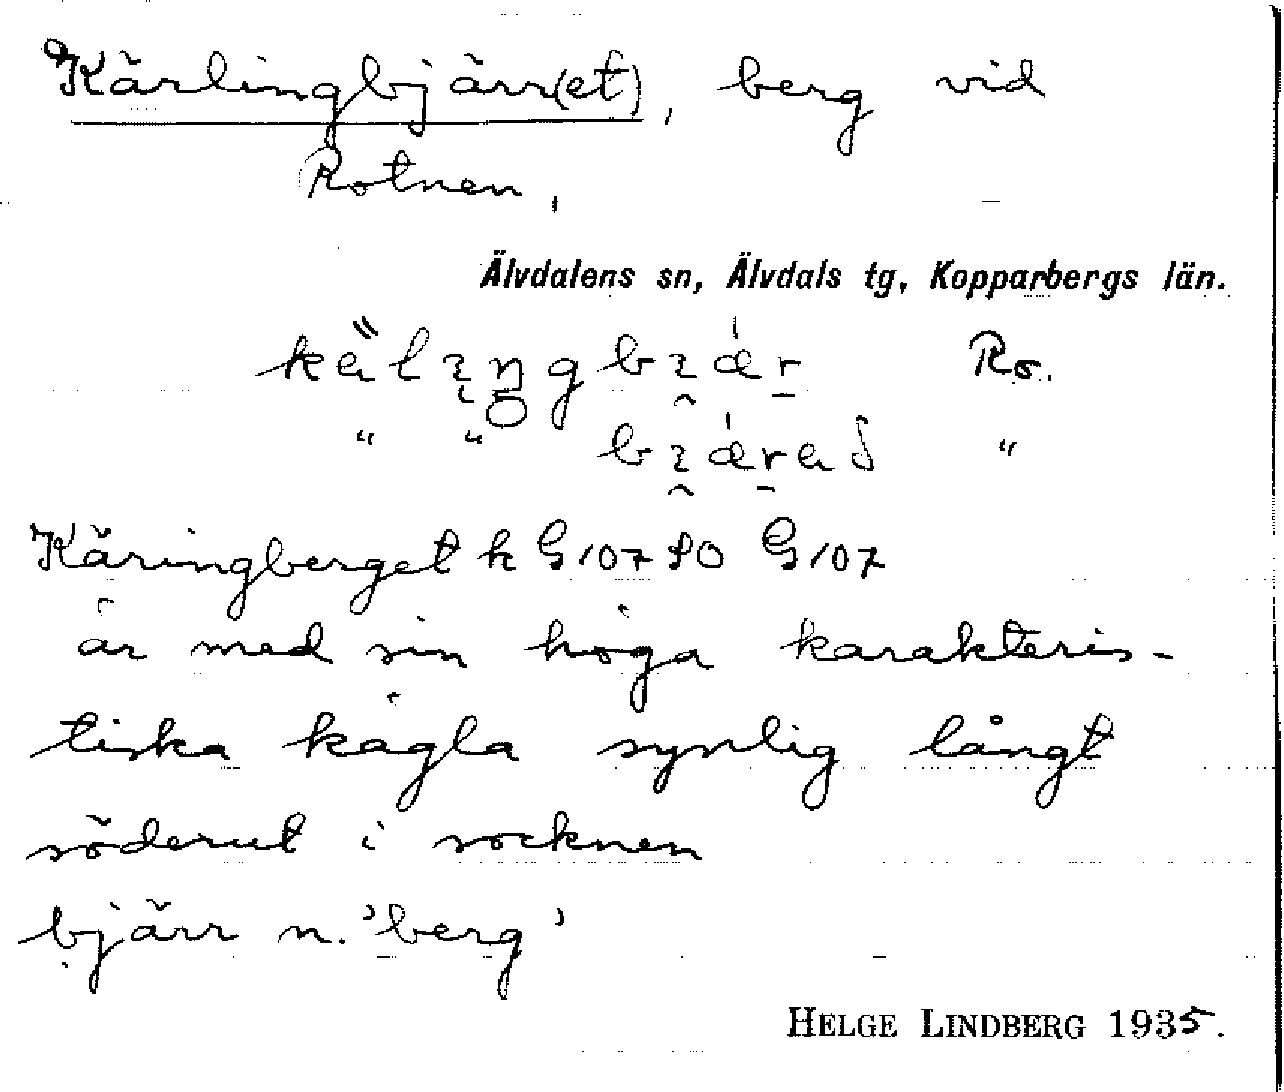 Kärlingbjärr(et), berg vid
Rotnen,
Älvdalens sn, Älvdals tg, Kopparbergs län.
Ro.
" " "
Käringberget k G107 SO G107
är med sin höga karakteris-
tiska kägla synlig långt
söderut i socknen
bjärr n. 'berg'
HELGE LINDBERG 1935.